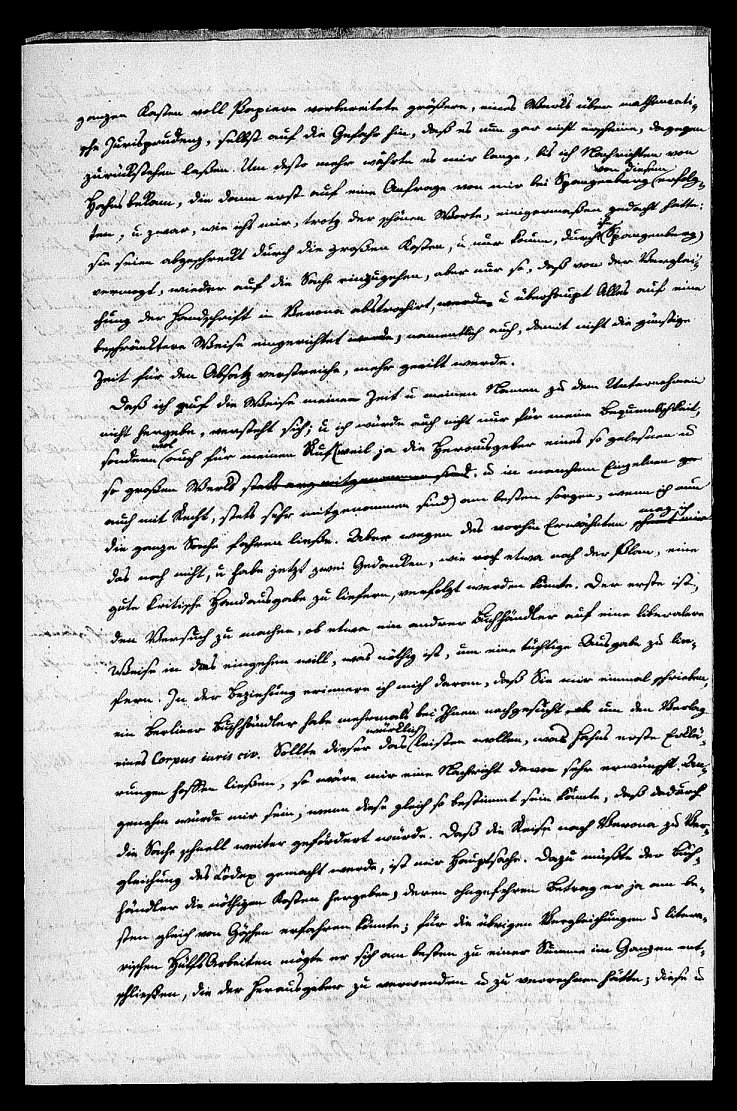 ganzen Kasten voll Papiere vorbereitete größere, eines Werks über mathemati-
sche Jurisprudenz, selbst auf die Gefahr hin, daß es nun gar nicht erscheine, dagegen
zurückstehen laßen. Um desto mehr währte es mir lange, bis ich Nachrichten von
Hahn bekam, die dann erst auf eine Anfrage von mir bei Spangenberg von diesem erfolg-
ten, u zwar, wie ich's mir, trotz der schönen Worte, einigermaßen gedacht hatte:
sie seien abgeschreckt durch die großen Kosten, u nur kaum, durch Spangenberg
vermogt, wieder auf die Sache einzugehen, aber nur so, daß von der Verglei-
chung der Handschrift in Verona abstrahirt, u überhaupt Alles auf eine
beschränktere Weise eingerichtet werde, namentlich auch, damit nicht die günstige
Zeit für den Absatz verstreiche, mehr geeilt werde.
Daß ich auf die Weise meine Zeit u meinen Namen zu dem Unternehmen
nicht hergebe, versteht sich; u ich würde auch nicht nur für meine Bequemlichkeit,
sondern wol auch für meinen Ruf (weil ja die Herausgeber eines so gelesnen u
so großen Werks stets u in manchem Einzelnen
auch mit Recht, stets sehr mitgenommen sind) am besten sorgen, wenn ich nun
die ganze Sache fahren ließe. Aber wegen des vorhin Erwähnten mag ich
das noch nicht, u habe jetzt zwei Gedanken, wie noch etwa nach der Plan, eine
gute kritische Handausgabe zu liefern, verfolgt werden könnte. Der erste ist,
den Versuch zu machen, ob etwa ein andrer Buchhändler auf eine liberalere
Weise in das eingehen will, was nöthig ist, um eine tüchtige Ausgabe zu lie-
fern. In der Beziehung erinnere ich mich daran, daß Sie mir einmal schrieben,
ein Berliner Buchhändler habe mehrmals bei Ihnen nachgesucht um den Verlag
eines Corpus iuris civ. Sollte dieser das würklich leisten wollen, was Hahns erste Erklä-
rungen hoffen ließen, so wäre mir eine Nachricht davon sehr erwünscht. An-
genehm würde mir sein, wenn diese gleich so bestimmt sein könnte, daß dadurch
die Sache schnell weiter gefördert würde. Daß die Reise nach Verona zu Ver-
gleichung des Codex gemacht werde, ist mir Hauptsache. Dazu müßte der Buch-
händler die nöthigen Kosten hergeben, deren ohngefähren Betrag er ja am be-
sten gleich von Göschen erfahren könnte; für die übrigen Vergleichungen u litera-
rischen Hülfsarbeiten mögte er sich am besten zu einer Summe im Ganzen ent-
schließen, die der Herausgeber zu verwenden u zu verrechnen hätte; diese u